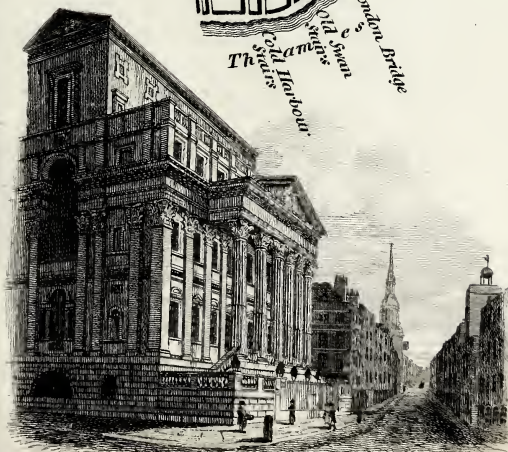 Thames
Cold Harbour
Stairs
Old Swan
Stairs
ondon Bridge